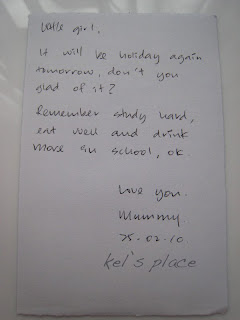 Little girl,
It will be holiday again
tomorrow, don't you
glad of it?
Remember study hard,
eat well and drink
more in school, ok.
Love you.
Mummy.
25.02.10
kel's place